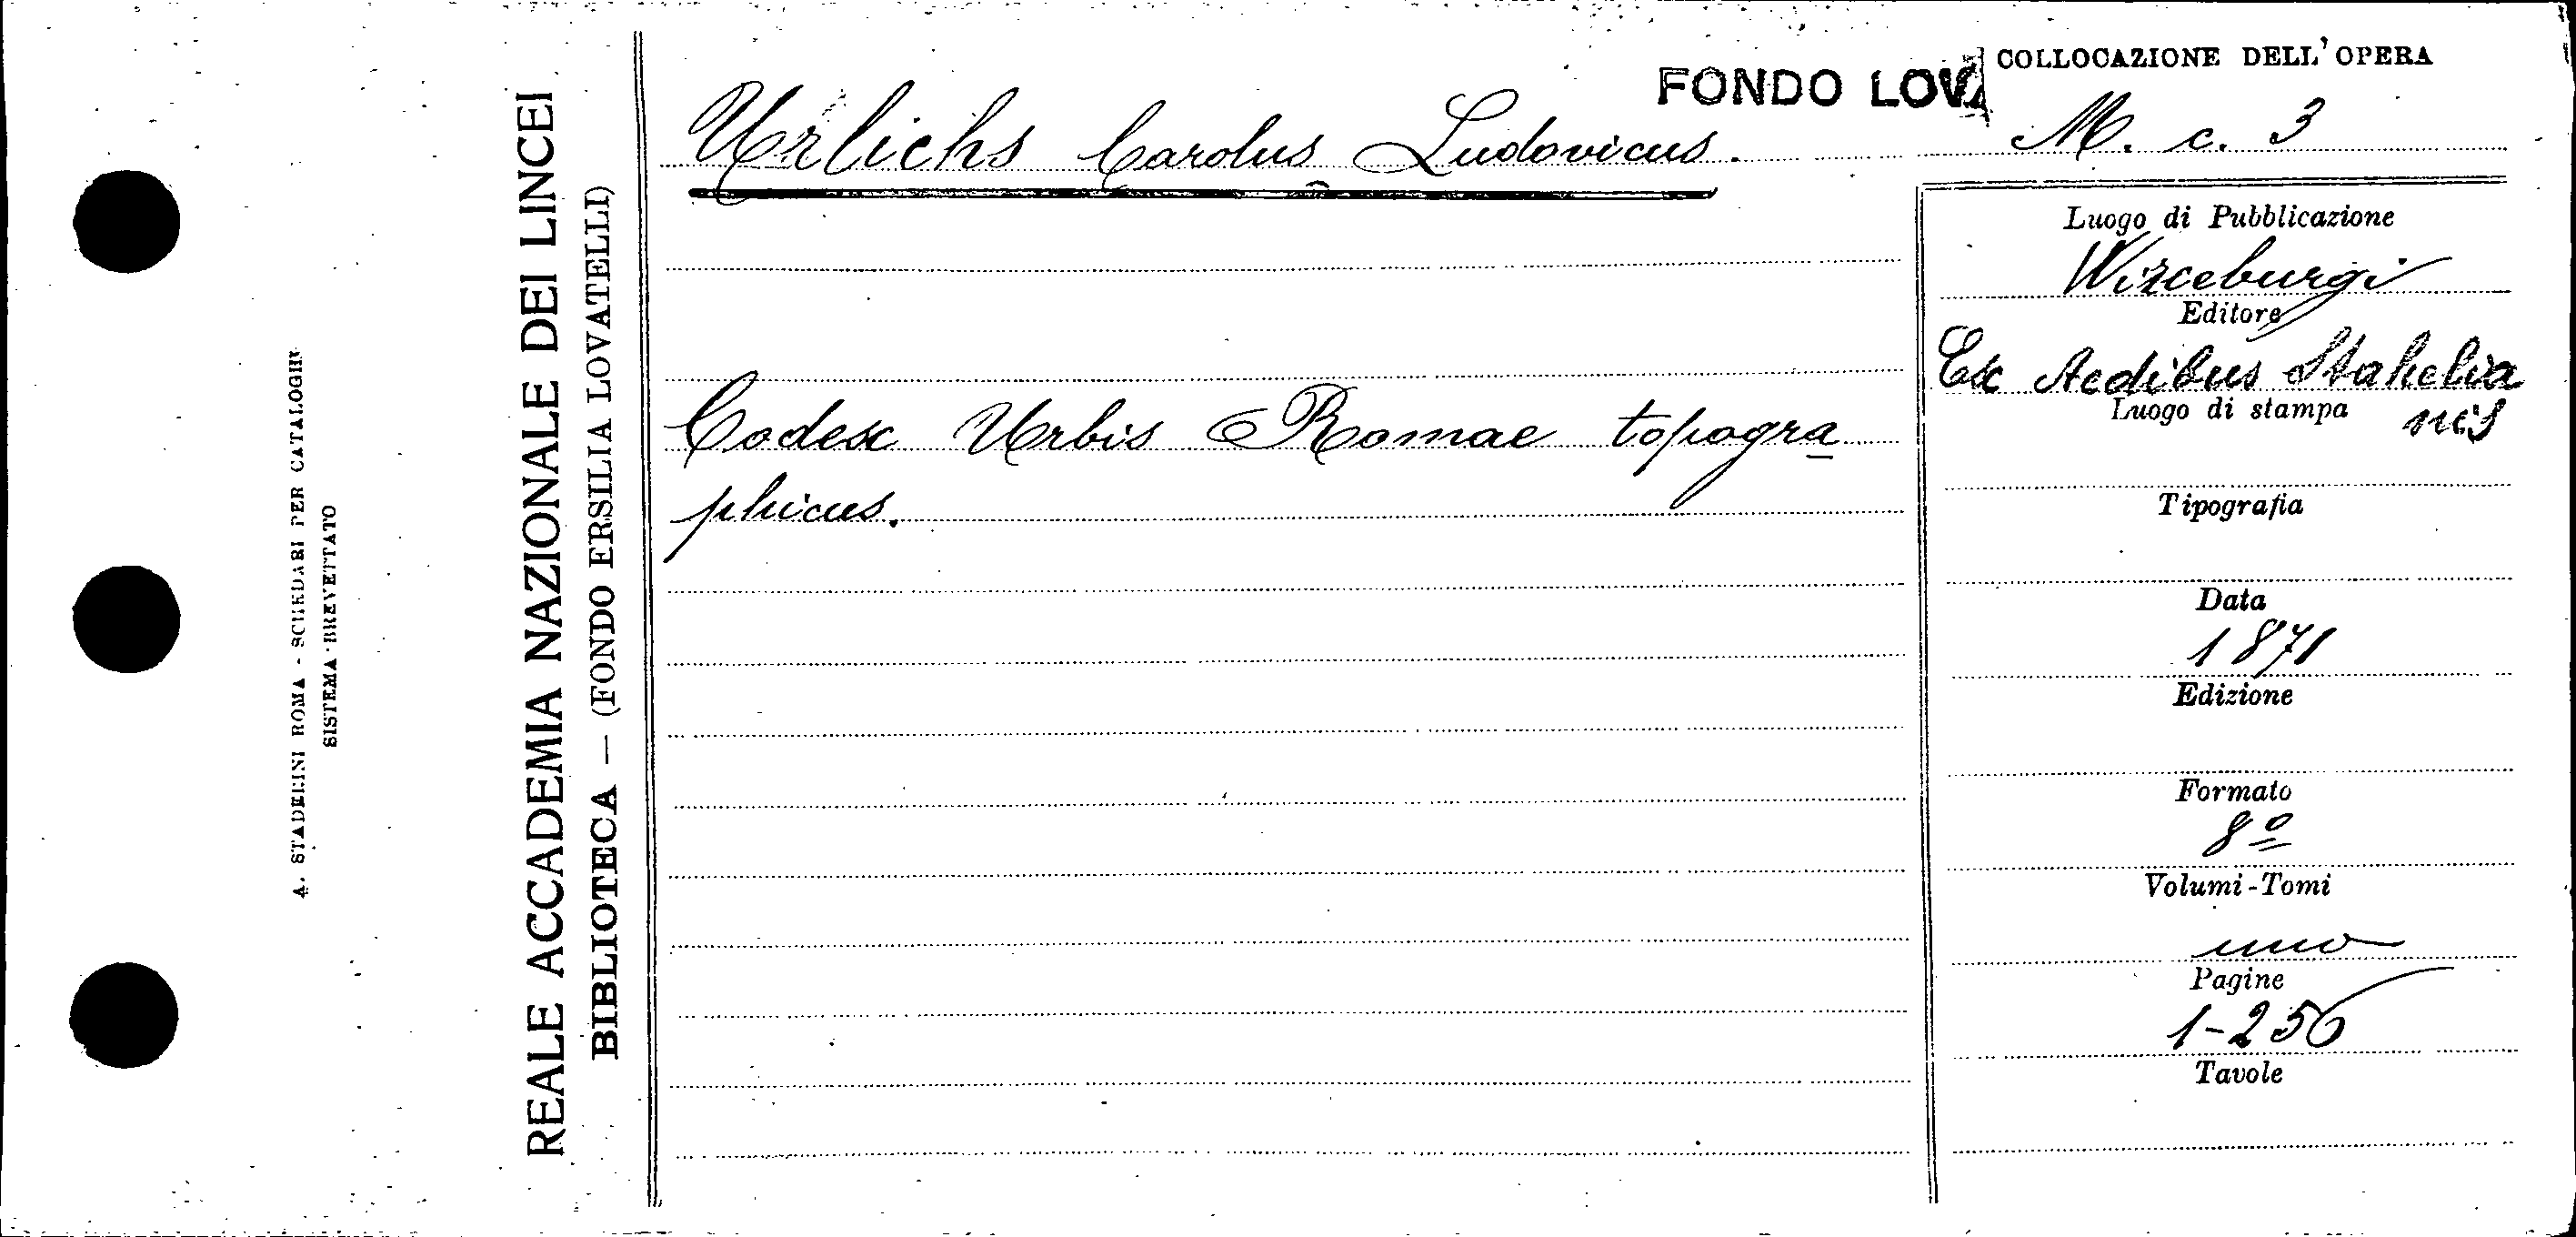 A. STADERINI ROMA - SCHEDARI PER CATALOGHI
SISTEMA BREVETTATO
REALE ACCADEMIA NAZIONALE DEI LINCEI
BIBLIOTECA — (FONDO ERSILIA LOVATELLI)
FONDO LOVA
COLLOCAZIONE DELL'OPERA
M. c. 3
Urlichs Carolus Ludovicus.
Codex Urbis Romae topogra
phicus.
Luogo di Pubblicazione
Wirceburgi
Editore
Ex Aedibus Stahelia
nis
Luogo di stampa
Tipografia
Data
1871
Edizione
Formato
8º
Volumi-Tomi
uno
Pagine
1-256
Tavole